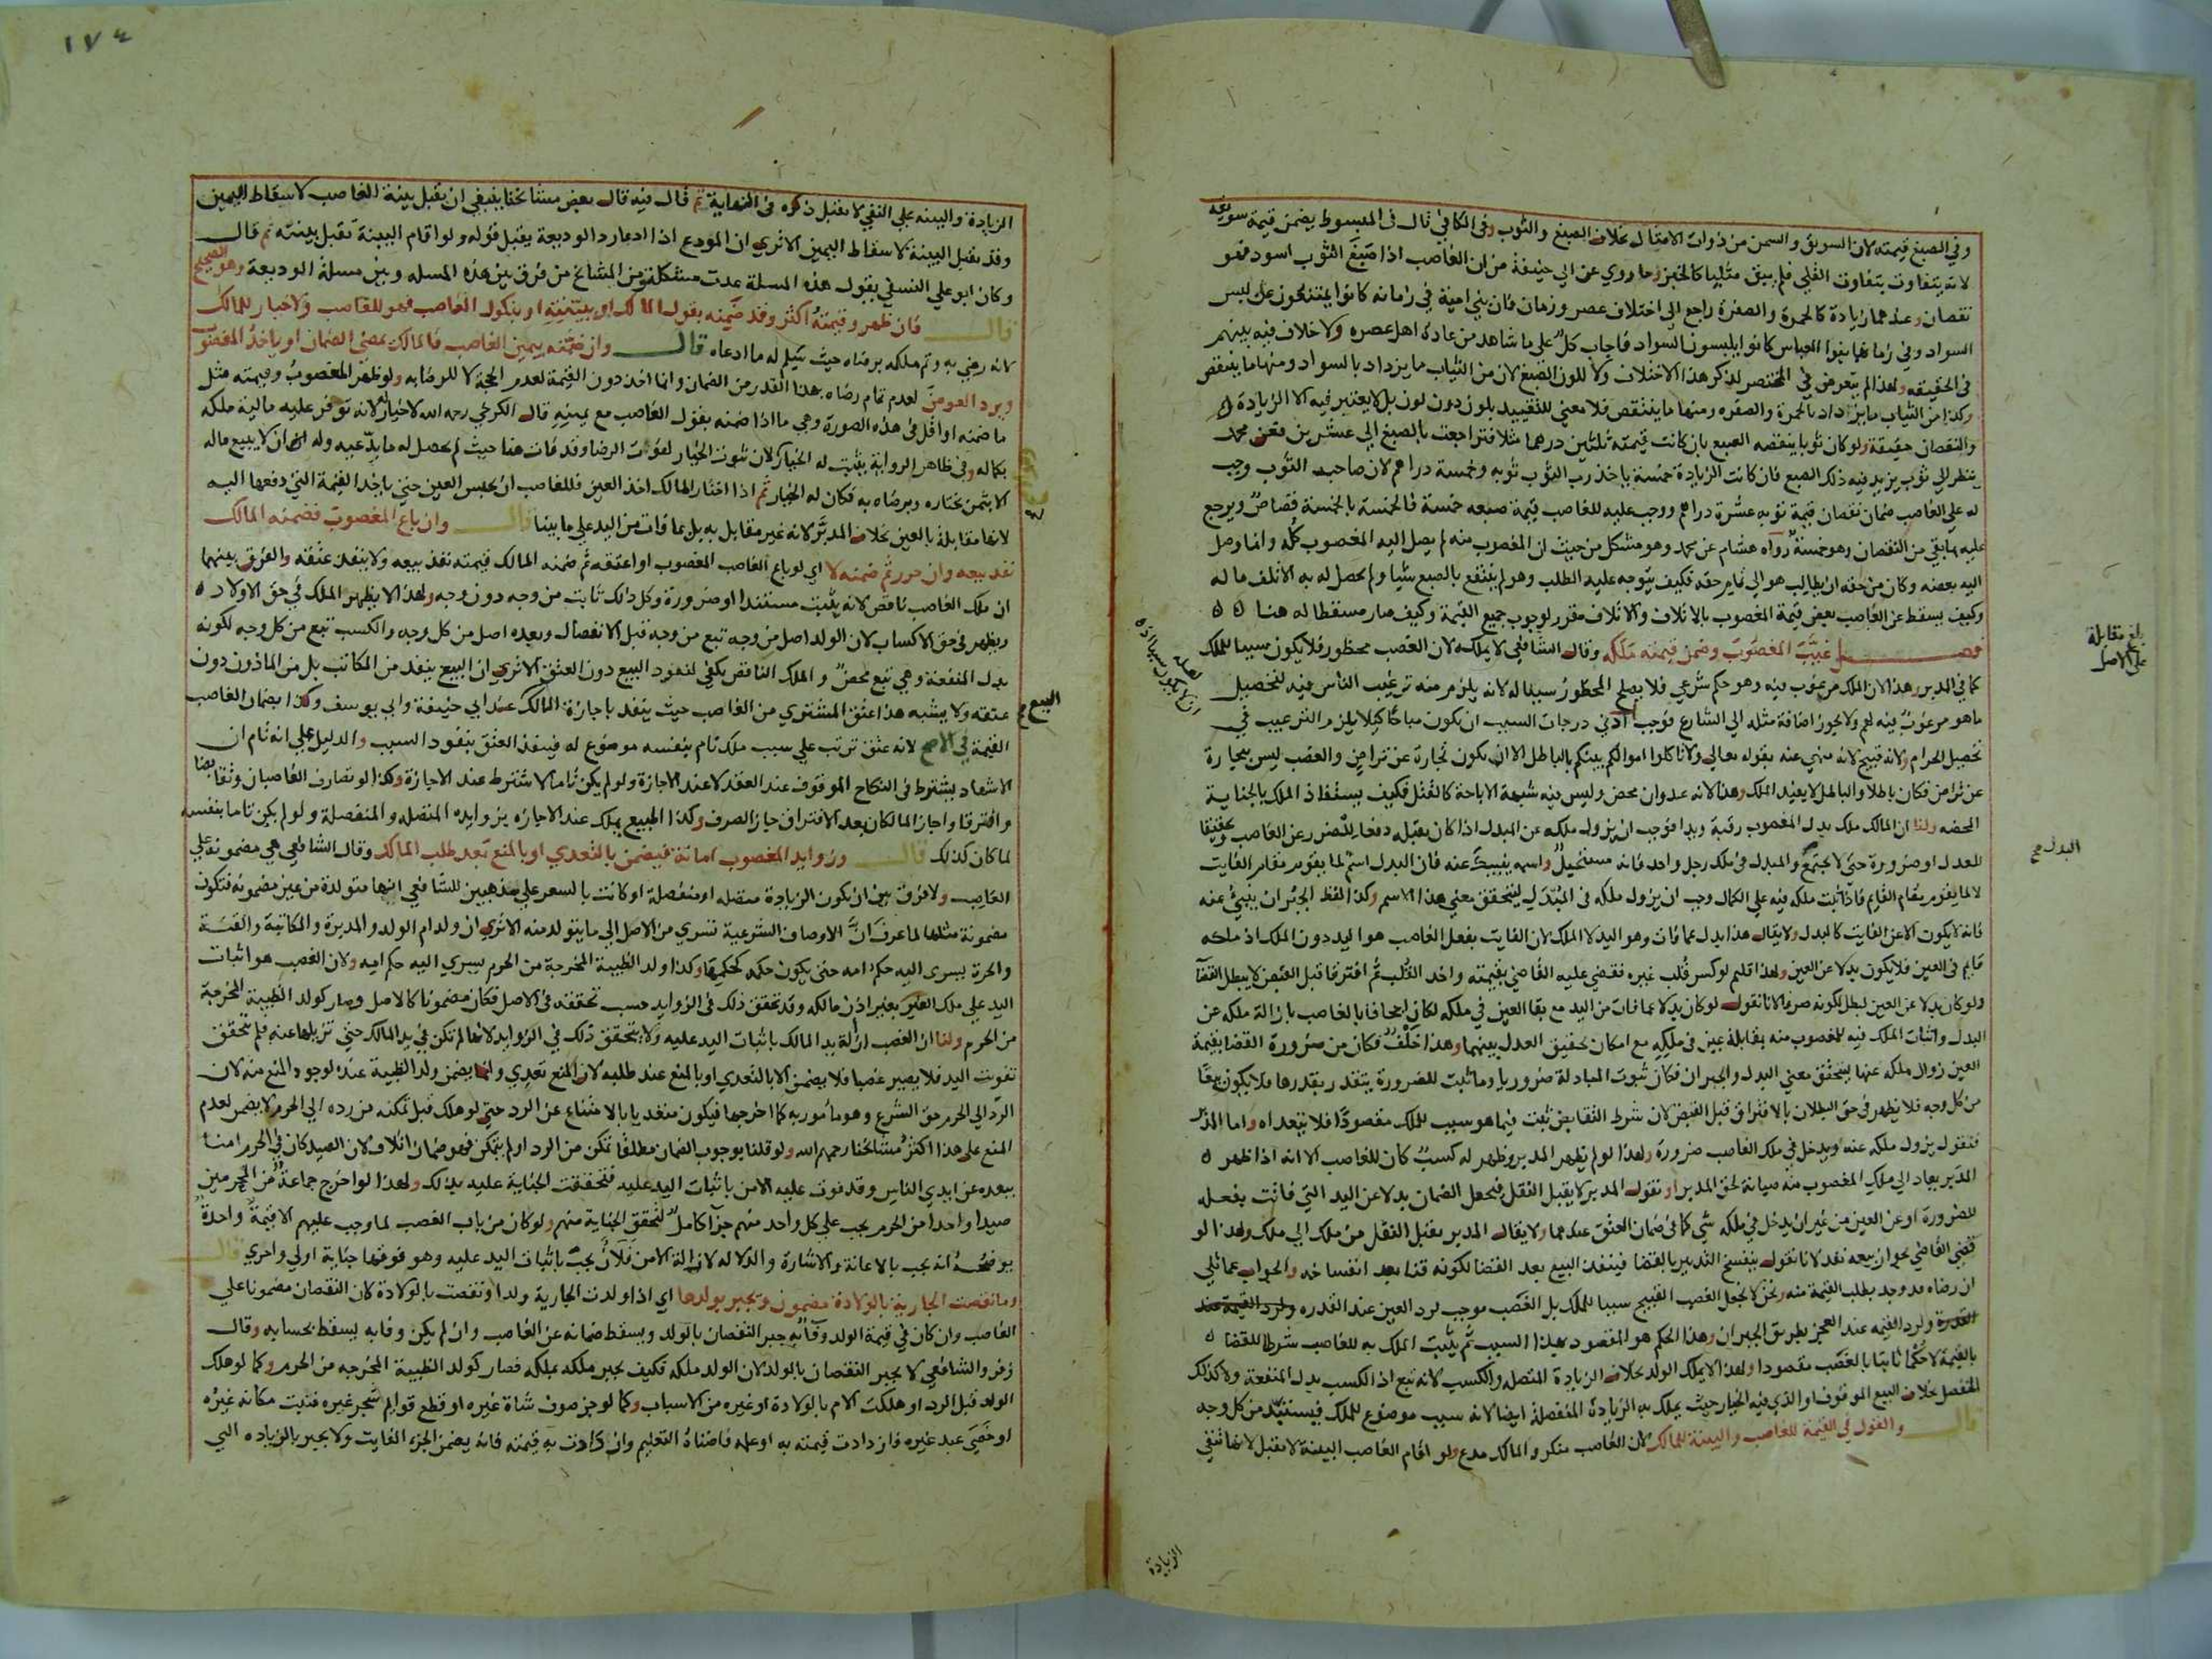 وفي الصبغ قيمته لان السويق والسمن من ذوات الامثال بخلاف الصبغ والثوب وفي الكافي قال في المبسوط يضمن قيمة سويقه
لانه يتفاوت بتفاوت القلي فلم يبق مثليا كالخبز وما روي عن ابي حنيفة من ان الغاصب اذا صبغ الثوب اسود فهو
نقصان وعندهما زيادة كالحمرة والصفرة راجع الى اختلاف عصر وزمان فان بني امية في زمانه كانوا يمتنعون عن لبس
السواد وفي زمانهما بنوا العباس كانوا يلبسون السواد فاجاب كل على ما شاهد من عادة اهل عصره ولا خلاف فيه بينهم
في الحقيقة ولهذا لم يتعرض في المختصر لذكر هذا الاختلاف ولا للون الصبغ لان من الثياب ما يزداد بالسواد ومنها ما ينتقص
وكذا من الثياب ما يزداد بالحمرة والصفره ومنها ما ينتقص فلا معنى للتقييد بلون دون لون بل لا يعتبر فيه الا الزيادة
والنقصان حقيقة ولو كان ثوبا ينقصه الصبع بان كانت قيمته ثلثين درهما مثلا فتراجعت بالصبغ الى عشرين فعن محمد
ينظر الى ثوب يزيد فيه ذلك الصبع فان كانت الزيادة خمسة ياخذ رب الثوب ثوبه وخمسة دراهم لان صاحب الثوب وجب
له على الغاصب ضمان نقصان قيمة ثوبه عشرة دراهم ووجب عليه للغاصب قيمة صبغه خمسة فالخمسة بالخمسة قصاص ويرجع
عليه بما بقي من النقصان وهو خمسة رواه هشام عن محمد وهو مشكل من حيث ان المغصوب منه لم يصل اليه المغصوب كله وانما وصل
اليه بعضه وكان من حقه ان يطالب هو الى تمام حقه فكيف يتوجه عليه الطلب وهو لم ينتفع بالصبع شيا ولم يحصل له به الا تلف ما له
وكيف يسقط عن الغاصب بعض قيمة المغصوب بالاتلاف والاتلاف مقرر لوجوب جميع القيمة وكيف صار مسقطا له هنا
فصل غيب المغصوب وضمن قيمته ملكه وقال الشافعي لا يملكه لان الغصب محظور فلا يكون سببا للملك
كما في المدبر وهذا لان الملك مرغوب فيه وهو حكم شرعي فلا يصلح المحظور سببا له لانه يلزم منه ترغيب الناس فيه لتحصيل
ما هو مرغوب فيه لهم ولا يجوز اضافة مثله الى الشارع فوجب ادنى درجات السبب ان يكون مباحا كيلا يلزم الترغيب في
تحصيل الحرام ولانه قبيح لانه منهي عنه بقوله تعالى ولا تاكلوا اموالكم بينكم بالباطل الا ان تكون تجارة عن تراض والغصب ليس بتجارة
عن تراض فكان باطلا والباطل لا يفيد الملك وهذا لانه عدوان محض وليس فيه شبهة الاباحة كالقتل فكيف يستفاد الملك بالجناية
المحضه ولنا ان المالك ملك بدل المغصوب رقبة ويدا فوجب ان يزول ملكه عن المبدل اذا كان يقبله دفعا للضرر عن الغاصب وتحقيقا
للعدل او ضرورة حتى لا يجتمع والمبدل في ملك رجل واحد فانه مستحيل واسمه ينبيك عنه فان البدل اسم لما يقوم مقام الفايت
لا لما يقوم مقام القايم فاذا ثبت ملكه فيه على الكمال وجب ان يزول ملكه في المبدل ليتحقق معنى هذا الاسم وكذا لفظ الجبران ينبئ عنه
فانه لا يكون الا عن الفايت كالبدل ولا يقال هذا بدل عما فات وهو اليد لا الملك لان الفايت بفعل الغاصب هو اليد دون الملك اذ ملكه
قايم في العين فلا يكون بدلا عن العين ولهذا قلتم لو كسر قلب غيره فقضى عليه القاضي بقيمته واخذ القلب ثم افترقا قبل القبض لا يبطل القضا
ولو كان بدلا عن العين لبطل لكونه صرفا لانا نقول لو كان بدلا عما فات من اليد مع بقا العين في ملكه لكان اجحافا بالغاصب بازالة ملكه عن
البدل واثبات الملك فيه للمغصوب منه بمقابلة عين في ملكه مع امكان تحقيق العدل بينهما وهذا خلف فكان من ضرورة القضا بقيمة
العين زوال ملكه عنها ليتحقق معنى البدل والجبران فكان ثبوت المبادلة ضروريا وما ثبت للضرورة يتقدر بقدرها فلا يكون بيعا
من كل وجه فلا يظهر في حق البطلان بالافتراق قبل القبض لان شرط التقابض ثبت فيما هو سبب للملك مقصودا فلا يتعداه واما المدبر
فنقول يزول ملكه عنه ويدخل في ملك الغاصب ضرورة ولهذا لو لم يظهر المدبر وظهر له كسب كان للغاصب الا انه اذا ظهر
المدبر يعاد الى ملك المغصوب منه صيانة لحق المدبر او نقول المدبر لا يقبل النقل فيجعل الضمان بدلا عن اليد التي فاتت بفعله
للضرورة او عن العين من غير ان يدخل في ملكه شي كما في ضمان العتق عندهما ولا يقال المدبر يقبل النقل من ملك الى ملك ولهذا لو
قضى القاضي بجواز بيعه نفذ لانا نقول ينفسخ التدبير بالقضا فينفذ البيع بعد القضا لكونه قنا بعد انفساخه والجواب عما تلي
ان رضاه قد وجد بطلب القيمة منه ونحن لا نجعل الغصب القبيح سببا للملك بل الغصب موجب لرد العين عند القدره ولرد القيمة عند
القدرة ولرد القيمه عند العجز بطريق الجبران وهذا الحكم هو المقصود بهذا السبب ثم يثبت الملك به للغاصب شرطا للقضا
بالقيمة لا حكما ثابتا بالغصب مقصودا ولهذا لا يملك الولد بخلاف الزيادة المتصله والكسب لانه تبع اذ الكسب بدل المنفعة ولا كذلك
المنفصل بخلاف البيع الموقوف او الذي فيه الخيار حيث يملك به الزيادة المنفصلة ايضا لانه سبب موضوع للملك فيستند من كل وجه
قال والقول في القيمة للغاصب والبينة للمالك لان الغاصب منكر والمالك مدع ولو اقام الغاصب البينة لا تقبل لانها تنفي
بلغ مقابلة
على الاصل
البدل صح
الزيادة
١٧٤
الزيادة والبينه على النفي لا تقبل ذكره في النهاية ثم قال فيه قال بعض مشائخنا ينبغي ان تقبل بينة الغاصب لاسقاط اليمين
وقد تقبل البينة لاسقاط اليمين الا ترى ان المودع اذا ادعا رد الوديعة يقبل قوله ولو اقام البينة تقبل بينته ثم قال
وكان ابو علي النسفي يقول هذه المسلة عدت مشكلة ومن المشائخ من فرق بين هذه المسله وبين مسلة الوديعة وهو الصحيح
قال فان ظهر وقيمته اكثر وقد ضمنه بقول المالك او ببينته او بنكول الغاصب فهو للغاصب ولا خيار للمالك
لانه رضي به وتم ملكه برضاه حيث سلم له ما ادعاه قال وان ضمنه بيمين الغاصب فالمالك يمضي الضمان او ياخذ المغصوب
ويرد العوض لعدم تمام رضاه بهذا القدر من الضمان وانما اخذ دون القيمة لعدم الحجة لا للرضا به ولو ظهر المغصوب وقيمته مثل
ما ضمنه او اقل في هذه الصورة وهي ما اذا ضمنه بقول الغاصب مع يمينه قال الكرخي رحمه الله لا خيار له لانه توفر عليه مالية ملكه
بكماله وفي ظاهر الرواية يثبت له الخيار لان ثبوت الخيار لفوت الرضا وقد فات هنا حيث لم يحصل له ما يدعيه وله ان لا يبيع ماله
الا بثمن يختاره ويرضاه به فكان له الخيار ثم اذا اختار المالك اخذ العين فللغاصب ان يحبس العين حتى ياخذ القيمة التي دفعها اليه
لانها مقابلة بالعين بخلاف المدبر لانه غير مقابل به بل بما فات من اليد على ما بينا قال وان باع المغصوب فضمنه المالك
نفذ بيعه وان حرر ثم ضمنه لا اي لو باع الغاصب المغصوب او اعتقه ثم ضمنه المالك قيمته نفذ بيعه ولا ينفذ عتقه والفرق بينهما
ان ملك الغاصب ناقص لانه يثبت مستندا او ضرورة وكل ذلك ثابت من وجه دون وجه ولهذا لا يظهر الملك في حق الاولاد
ويظهر في حق الاكساب لان الولد اصل من وجه تبع من وجه قبل الانفصال وبعده اصل من كل وجه والكسب تبع من كل وجه لكونه
بدل المنفعة وهي تبع محض والملك الناقص يكفي لنفوذ البيع دون العتق الا ترى ان البيع ينفذ من المكاتب بل من الماذون دون
عتقه ولا يشبه هذا عتق المشتري من الغاصب حيث ينفذ باجازة المالك عند ابي حنيفة وابي يوسف وكذا بضمان الغاصب
القيمة في الاصح لانه عتق ترتب على سبب ملك تام بنفسه موضوع له فينفذ العتق بنفوذ السبب والدليل على انه تام ان
الاشهاد يشترط في النكاح الموقوف عند العقد لا عند الاجازة ولو لم يكن تاما لاشترط عند الاجازة وكذا لو تصارف الغاصبان وتقابضا
وافترقا واجاز المالكان بعد الافتراق جاز الصرف وكذا المبيع يملك عند الاجازه بزوايده المتصله والمنفصلة ولو لم يكن تاما بنفسه
لما كان كذلك قال وزوايد المغصوب امانة فيضمن بالتعدي او بالمنع بعد طلب المالك وقال الشافعي هي مضمونة على
الغاصب ولا فرق بين ان يكون الزيادة متصله او منفصلة او كانت بالسعر على مذهبين للشافعي انها متولدة من عين مضمونه فتكون
مضمونة مثلها لما عرف ان الاوصاف الشرعية تسري من الاصل الى ما يتولد منه الا ترى ان ولد ام الولد والمدبرة والمكاتبة والقنة
والحرة يسري اليه حكم امه حتى يكون حكمه كحكمها وكذا ولد الظبية المخرجة من الحرم يسري اليه حكم امه ولان الغصب هو اثبات
اليد على ملك الغير بغير اذن مالكه وقد تحقق ذلك في الزوايد حسب تحققه في الاصل فكان مضمونا كالاصل وصار كولد الظبية المخرجة
من الحرم ولنا ان الغصب ازالة يد المالك باثبات اليد عليه ولا يتحقق ذلك في الزوايد لانها لم تكن في يد المالك حتى تزيلها عنه فلم يتحقق
تفويت اليد فلا يصير غصبا فلا يضمن الا بالتعدي او بالمنع عند طلبه لان المنع تعدي وانما يضمن ولد الظبية عنده لوجود المنع منه لان
الرد الى الحرم حق الشرع وهو مامور به كما اخرجها فيكون متعديا بالامتناع عن الرد حتى لو هلك قبل تمكنه من رده الى الحرم لا يضمن لعدم
المنع على هذا اكثر مشائخنا رحمهم الله ولو قلنا بوجوب الضمان مطلقا تمكن من الرد او لم يتمكن فهو ضمان اتلاف لان الصيد كان في الحرم امنا
ببعده عن ايدي الناس وقد فوت عليه الامن باثبات اليد عليه فتحققت الجناية عليه بذلك ولهذا لو اخرج جماعة من المحرمين
صيدا واحدا من الحرم يجب على كل واحد منهم جزا كامل لتحقق الجناية منهم ولو كان من باب الغصب لما وجب عليهم الا قيمة واحدة
يوضحه انه يجب بالاعانة والاشارة والدلاله لازالة الامن فلان يجب باثبات اليد عليه وهو فوقها جناية اولى واحرى قال
وما نقصت الجارية بالولادة مضمون وتجبر بولدها اي اذا ولدت الجارية ولدا ونقصت بالولادة كان النقصان مضمونا على
الغاصب وان كان في قيمة الولد وفا به جبر النقصان بالولد ويسقط ضمانه عن الغاصب وان لم يكن وفا به يسقط بحسابه وقال
زفر والشافعي لا يجبر النقصان بالولد لان الولد ملكه فكيف يجبر ملكه بملكه فصار كولد الظبية المخرجه من الحرم وكما لو هلك
الولد قبل الرد او هلكت الام بالولادة او غيره من الاسباب وكما لو جز صوف شاة غيره او قطع قوايم شجر غيره فنبت مكانه غيره
او خصى عبد غيره فازدادت قيمته به او علمه فاضناه التعليم وازدادت به قيمته فانه يضمن الجزء الفايت ولا يجبر بالزياده التي
البيع صح